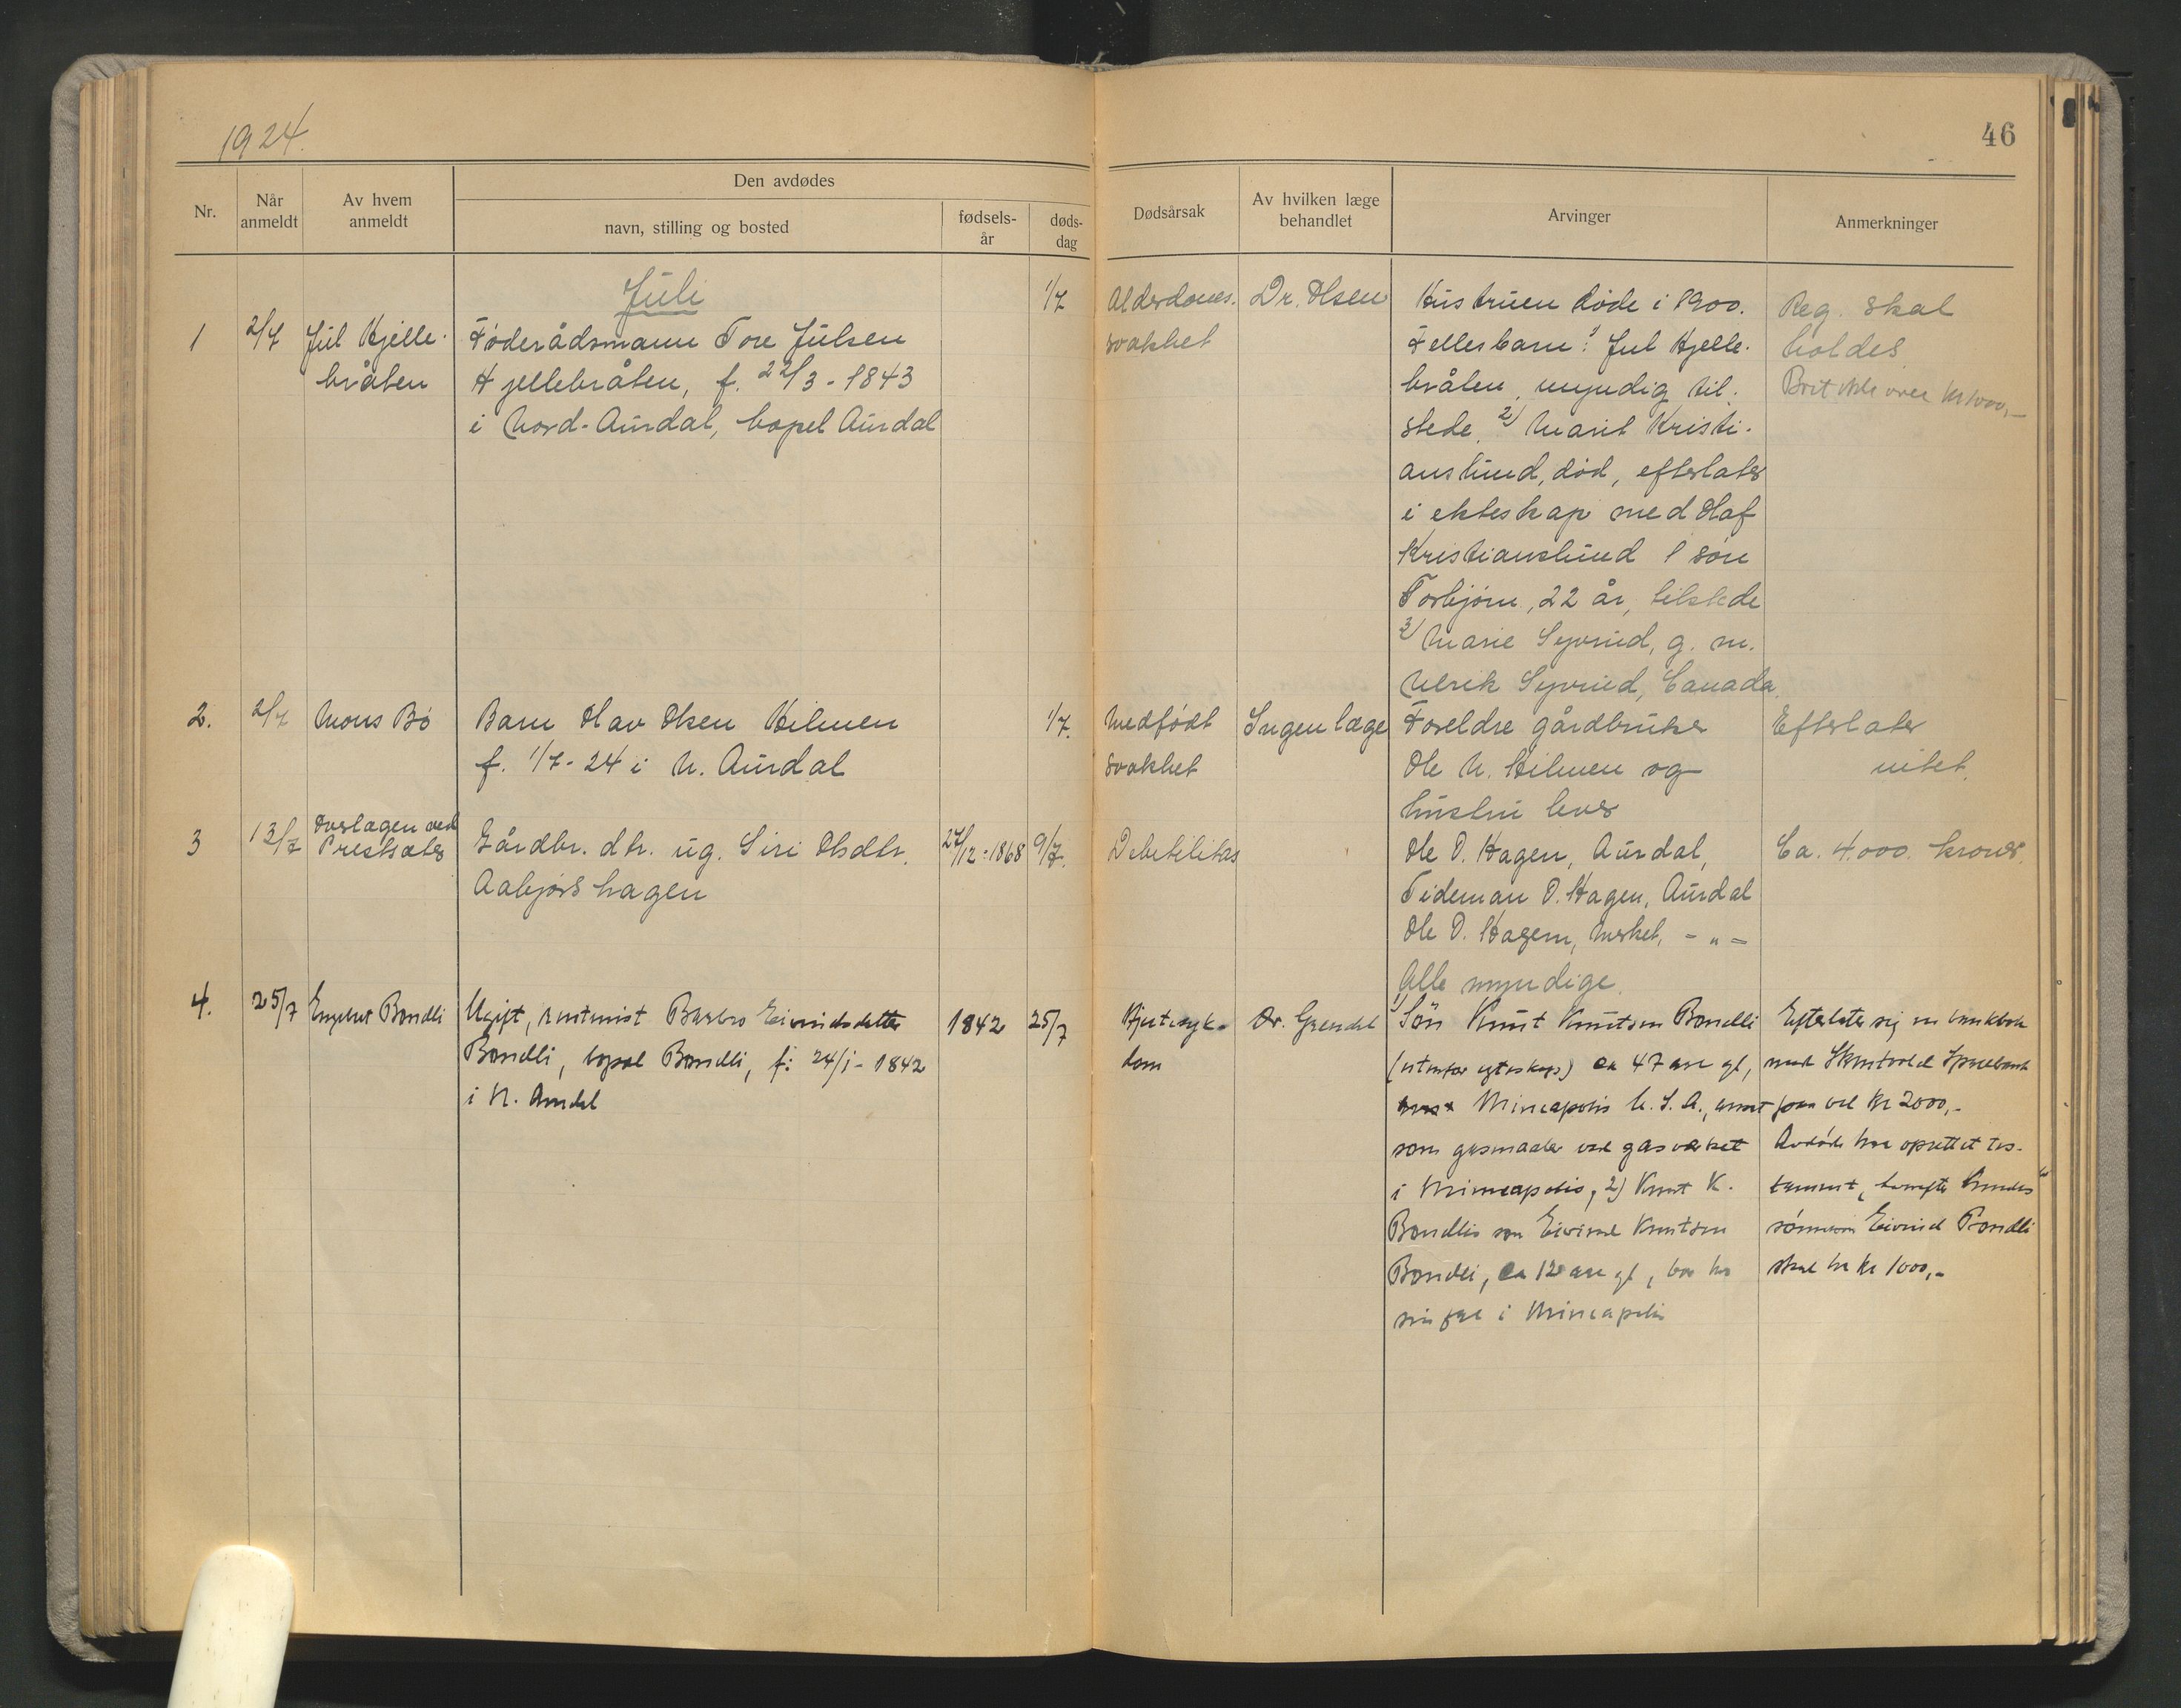 1924.
46
Nr.
Når anmeldt
Av hvem anmeldt
Den avdødes
navn, stilling og bosted
fødsels-år
døds-dag
Dødsårsak
Av hvilken læge behandlet
Arvinger
Anmerkninger
Juli
1
2/7
Jul Hjelle-
bråten
Føderådsmann Tore Julsen
Hjellebråten, f. 22/3-1843
i Nord-Aurdal, bopel Aurdal
1/7
Alderdoms-
svakhet
Dr. Olsen
Hustruen døde i 1900.
Fellesbarn: 1) Jul Hjelle-
bråten, myndig til-
stede, 2) Marit Kristi-
anslund, død, efterlater
i ekteskap med Olaf
Kristianslund 1 søn
Torbjørn, 22 år, tilstede
3) Marie Syverud, g. m.
Ulrik Syverud, Canada.
Reg. skal
holdes
over kr 1000,-
2.
2/7
Mons Bø
Barn Olav Olsen Hilmen
f. 1/7-24 i N. Aurdal
1/7.
Medfødt
svakhet
Ingen læge
Foreldre gårdbruker
Ole N. Hilmen og
hustru lever
Efterlater
intet.
3
13/7
Overlægen ved
Prestsæter
Gårdbr. dtr. ug. Siri Olsdtr.
Aabjørshagen
27/12-1868
9/7.
Debetilitas
Ole O. Hagen, Aurdal,
Tideman O. Hagen, Aurdal
Ole O. Hagen, - " -
Alle myndige.
Ca. 4.000. kroner.
4.
25/7
Engebret Bondli
Ugift, rentenist Barbro Eivindsdatter
Bondli, bopæl Bondli, f. 24/1-1842
i N. Aurdal
1842
25/7
Hjertesyk-
dom
Dr. Grendal
1) Søn Knut Knutsen Bondli
(utenfor egteskap) ca 47 aar gl,
Mineapolis U.S.A., ansat
som gasmaaler ved gasverket
i Mineapolis, 2) Knut K.
Bondlis søn Eivind Knutsen
Bondli, ca 12 aar gl, bor hos
sin far i Mineapolis
Efterlater sig en bankbok
med Skrutvold Sparebank
paa vel kr 2000,-
Avdøde har oprettet tes-
tament, hvorefter hendes
sønnesøn Eivind Bondli
skal ha kr 1000,-